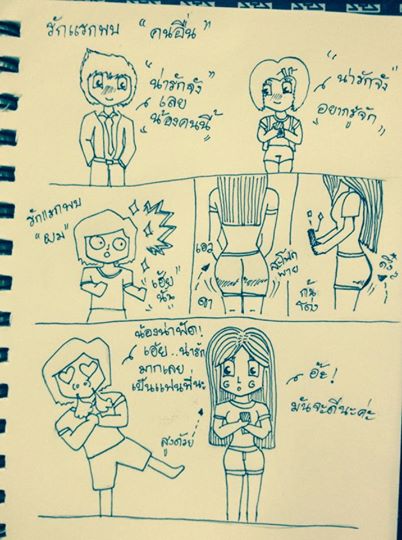 รักแรกพบ "คนอื่น"
"น่ารักจัง
เลย
น้องคนนี้"
"น่ารักจัง
อยากรู้จัก"
รักแรกพบ
"ผม"
"เฮ้ย
นั้น"
เอว
ขา
สะโพก
พาย
ก้น
น้องน่าฟัด!
เฮ้ย..น่ารัก
มากเลย
เป็นแฟนพี่นะ
สูงด้วย
อ๊ะ!
มันจะดีนะค่ะ